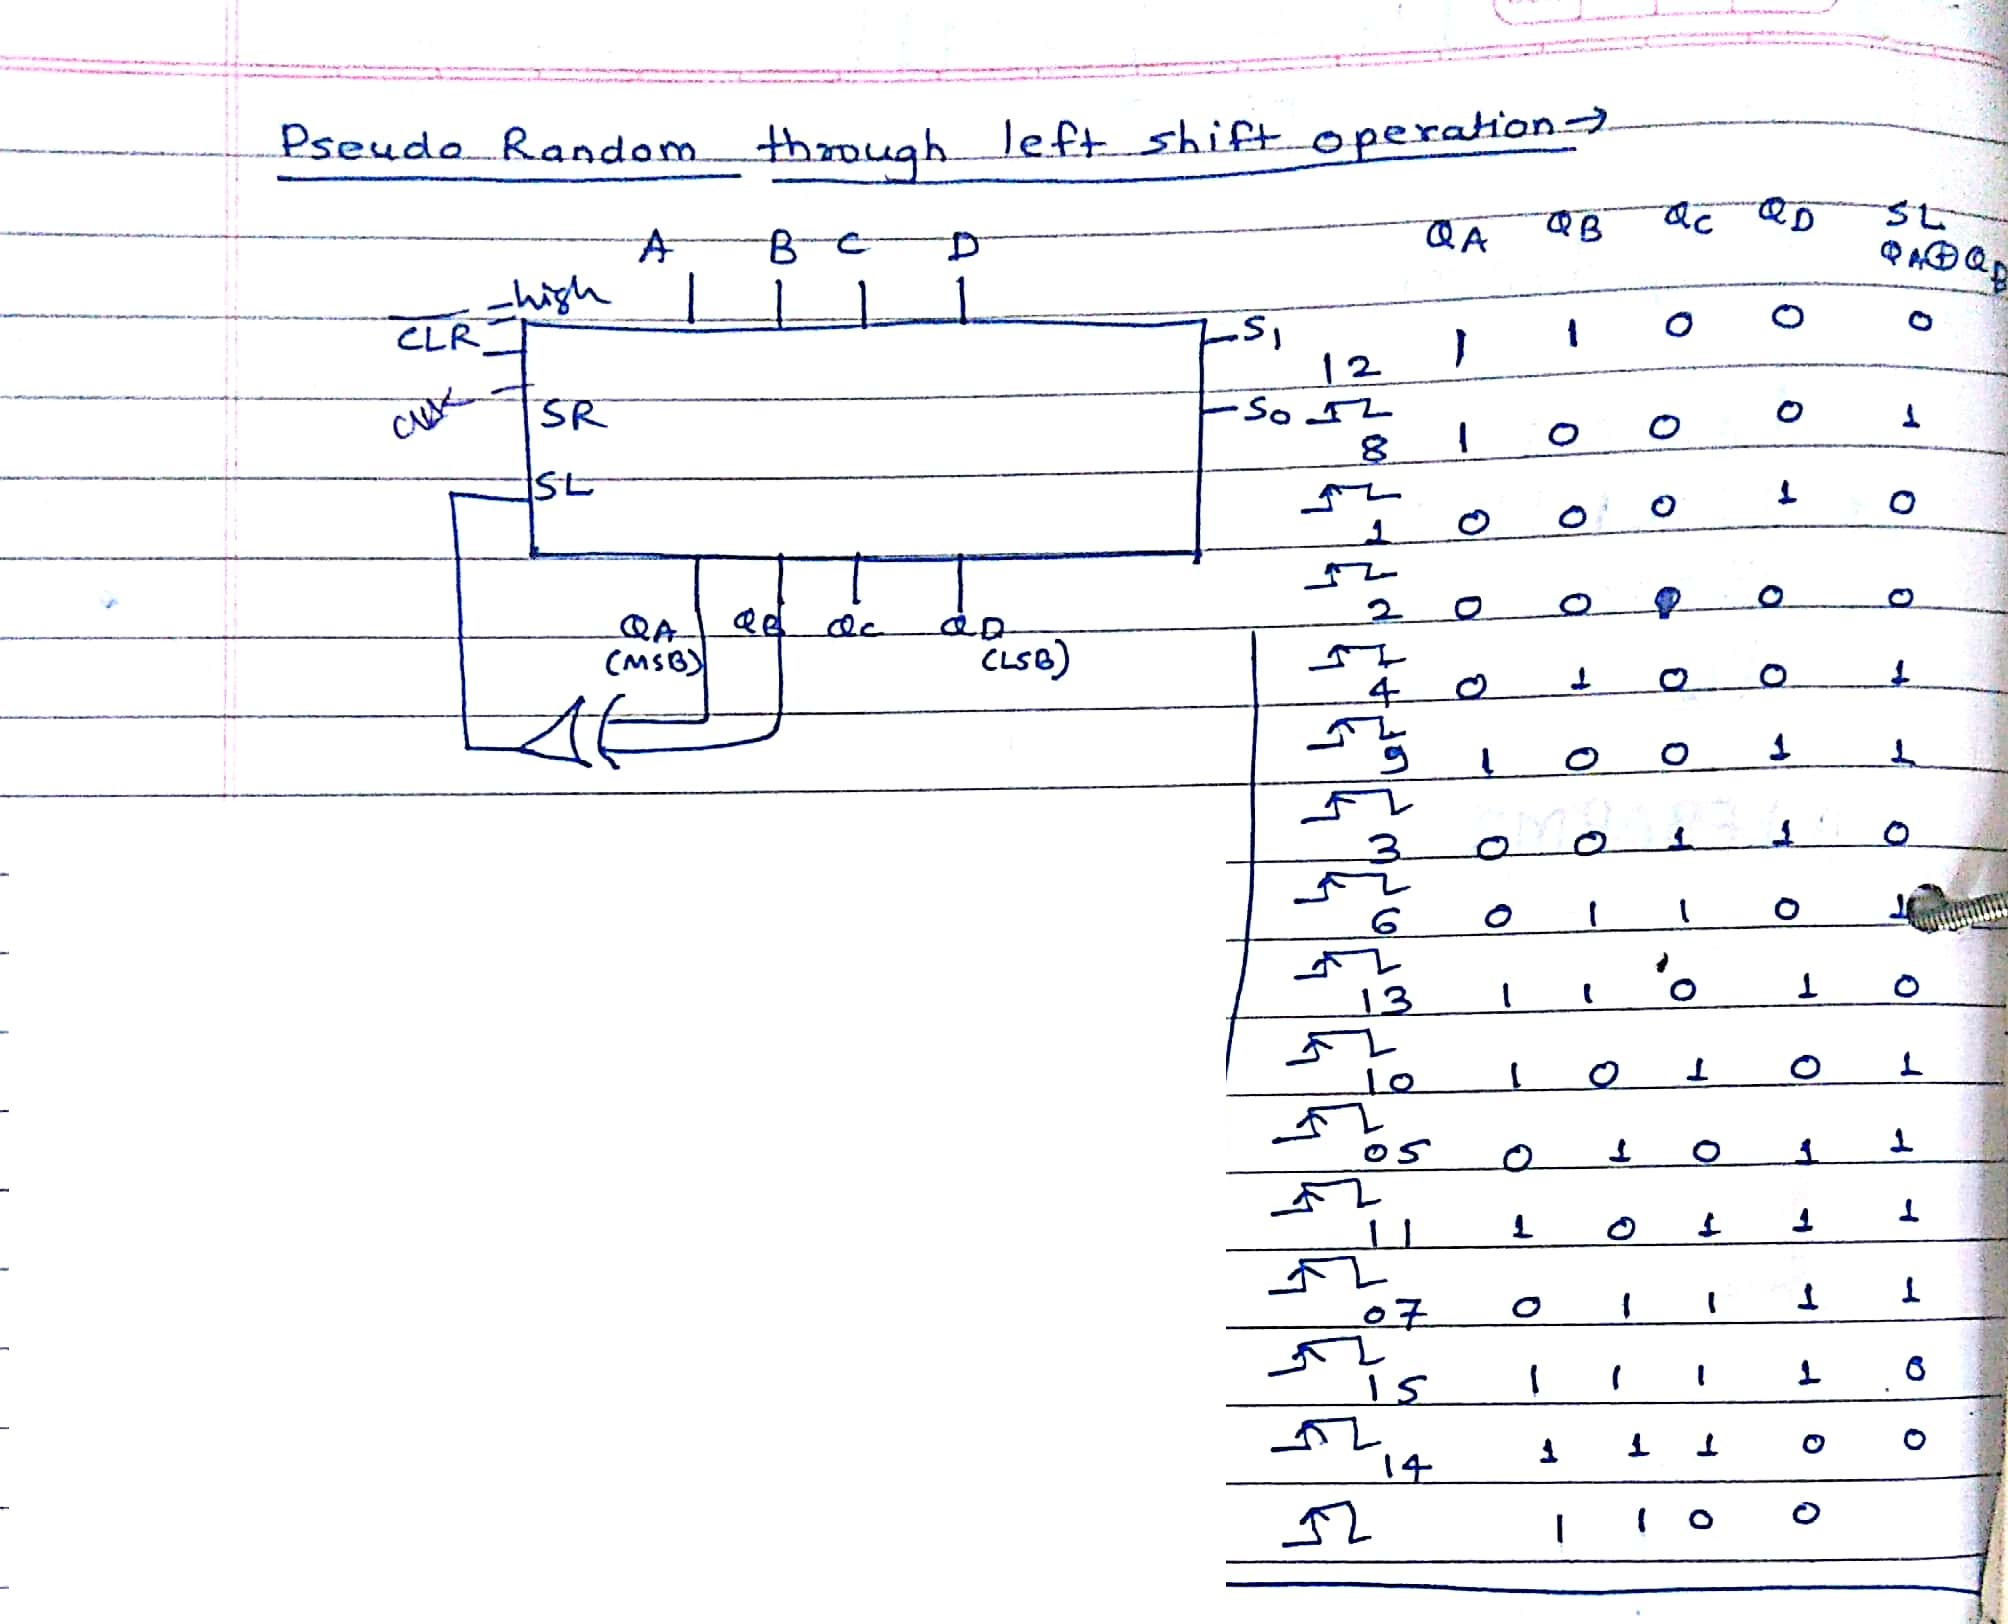 Pseudo Random through left shift operation→
A B C D
=high
CLR
CLK
SR
SL
S1
S0
QA QB QC QD
(MSB) (LSB)
QA QB QC QD SL
QA⊕QB
12 1 1 0 0 0
8 1 0 0 0 1
1 0 0 0 1 0
2 0 0 0 0
4 0 1 0 0 1
9 1 0 0 1 1
3 0 0 1 1 0
6 0 1 1 0 1
13 1 1 0 1 0
10 1 0 1 0 1
05 0 1 0 1 1
11 1 0 1 1 1
07 0 1 1 1 1
15 1 1 1 1 0
14 1 1 1 0 0
1 1 0 0